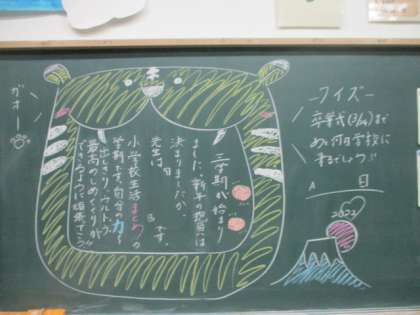 ガオー
三学期が始まり
ました。新年の抱負は
決まりましたか。
先生は
です。
小学校生活まとめの
学期です。自分の力を
出しきり、
最高のしめくくりが
できるように頑張ろう
クイズ
卒業式まで
あと何日学校に
るでしょう
A 日
2022